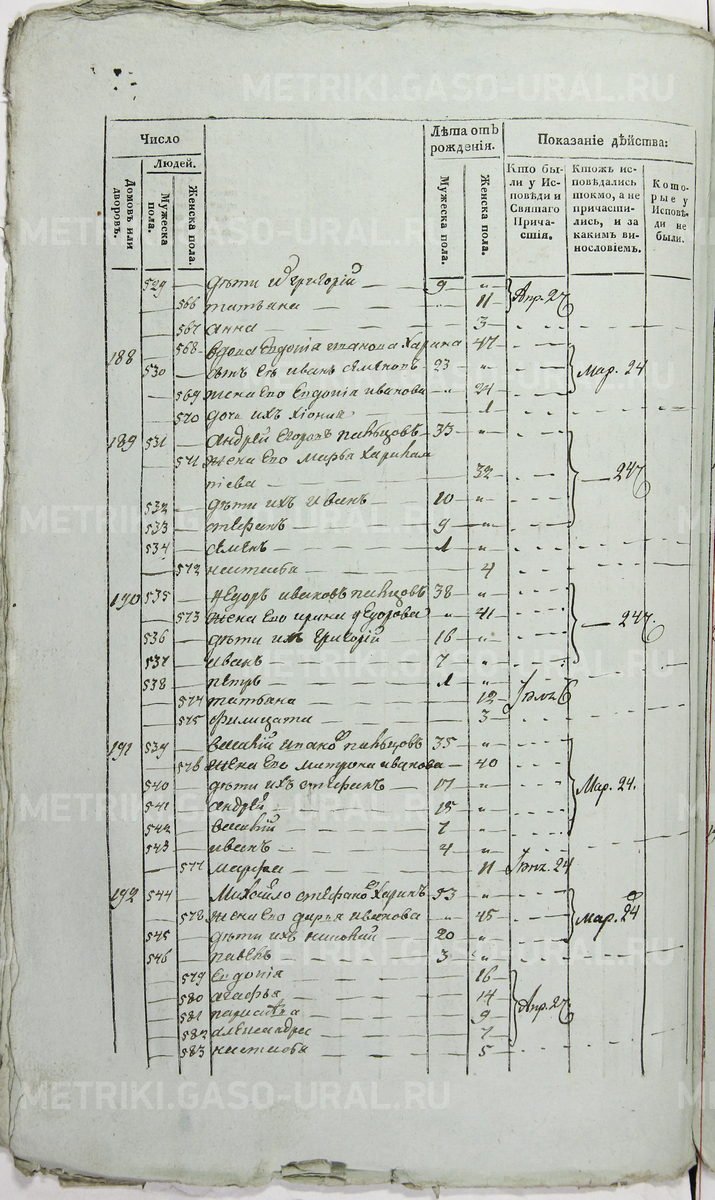 METRIKI.GASO-URAL.RU
Число
Людей.
Домовъ или дворовъ.
Мужеска пола.
Женска пола.
Лѣта отъ рожденія.
Мужеска пола.
Женска пола.
Показаніе дѣйства:
Кто бы-
ли у Ис-
повѣди и
Святаго
Прича-
стія.
Ктожъ ис-
повѣдались
токмо, а не
причасти-
лись, и за
какимъ ви-
нословіемъ.
Кото-
рые у
Исповѣ-
ди не
были.
529 — дѣти и Григорій — 9 „
566 — татьяна — 11 Апр. 27
567 — анна — 3
188 568 — вдова Евдокія Харина 47
530 — сынъ Ея иванъ Семеновъ 23 „ Мар. 24
569 жена Его Евдокія иванова „ 24
570 дочь ихъ — 1
189 531 — андрей Егоровъ 33 „
571 жена Его Марфа
32 — 247
532 — дѣти ихъ иванъ — 10 „
533 — стефанъ — 9 „
534 — семенъ — 1 „
572 — настасья — 4
190 535 — Ѳедоръ ивановъ 38 „
573 жена Его ирина Ѳедорова „ 41
536 — дѣти ихъ Григорій — 16 „ — 247
537 — иванъ — 7 „
538 — петръ — 1 „
574 — татьяна — 12
575 — филицата — 3
191 539 — 35 „
576 жена Его Матрона иванова — 40
540 — дѣти ихъ стефанъ — 17 „ Мар. 24.
541 — андрей — 15 „
542 — 7 „
543 — иванъ — 4 „
577 — марфа — 11 24
192 544 — Михайло стефановъ Харинъ 53 „
578 жена Его дарья иванова „ 45 Мар. 24
545 — дѣти ихъ 20 „
546 — павелъ — 3 „
579 Евдокія — 16
580 агафья — 14
581 — 9 Апр. 27
582 александра — 7
583 настасья — 5